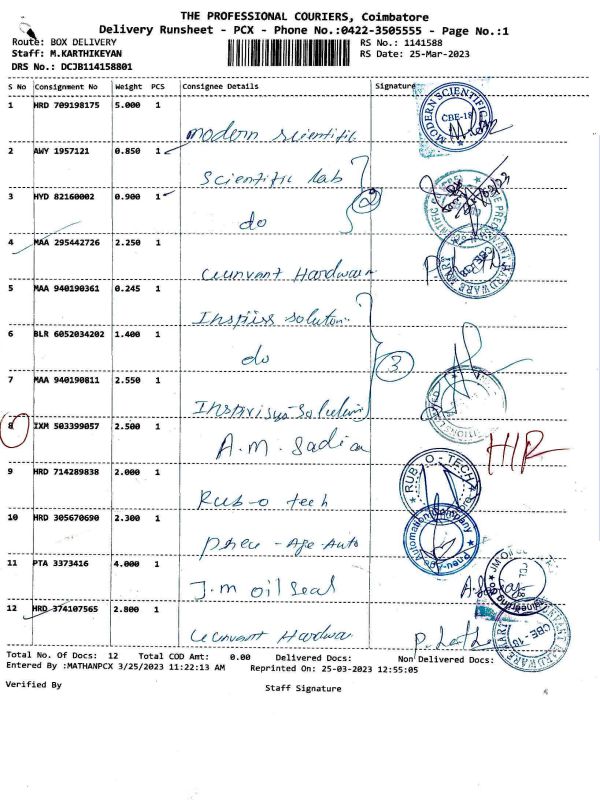 THE PROFESSIONAL COURIERS, Coimbatore
Delivery Runsheet - PCX - Phone No.:0422-3505555 - Page No.:1
Route: BOX DELIVERY
Staff: M.KARTHIKEYAN
DRS No.: DCJB114158801
RS No.: 1141588
RS Date: 25-Mar-2023
S No Consignment No Weight PCS Consignee Details Signature
1 HRD 709198175 5.000 1
modern scientific
MODERN SCIENTIFIC
CBE-18
2 AWY 1957121 0.850 1
Scientific lab
3 HYD 82160002 0.900 1
do
2
4 MAA 295442726 2.250 1
Hardware
HARDWARE MART
5 MAA 940190361 0.245 1
6 BLR 6052034202 1.400 1
do
3
7 MAA 940190811 2.550 1
8 IXM 503399057 2.500 1
A.M.
9 HRD 714289838 2.000 1
Rub-o tech
RUB-O-TECH
10 HRD 305670690 2.300 1
Pneu - Age - Auto
Pneu-Age Automation Company
11 PTA 3373416 4.000 1
J.m oil seal
JM Oil
12 HRD 374107565 2.800 1
HARDWARE MART
CBE-18
Total No. Of Docs: 12 Total COD Amt: 0.00 Delivered Docs: Non Delivered Docs:
Entered By :MATHANPCX 3/25/2023 11:22:13 AM Reprinted On: 25-03-2023 12:55:05
Verified By
Staff Signature